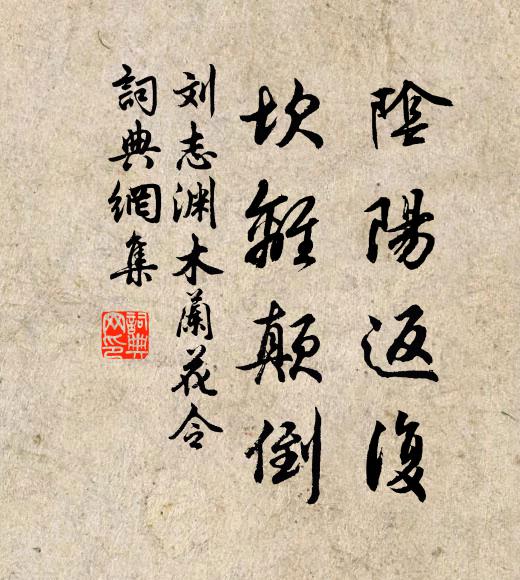 陰陽返復
坎離顛倒
刘志渊木蘭花令
詞典網集
詞典网印